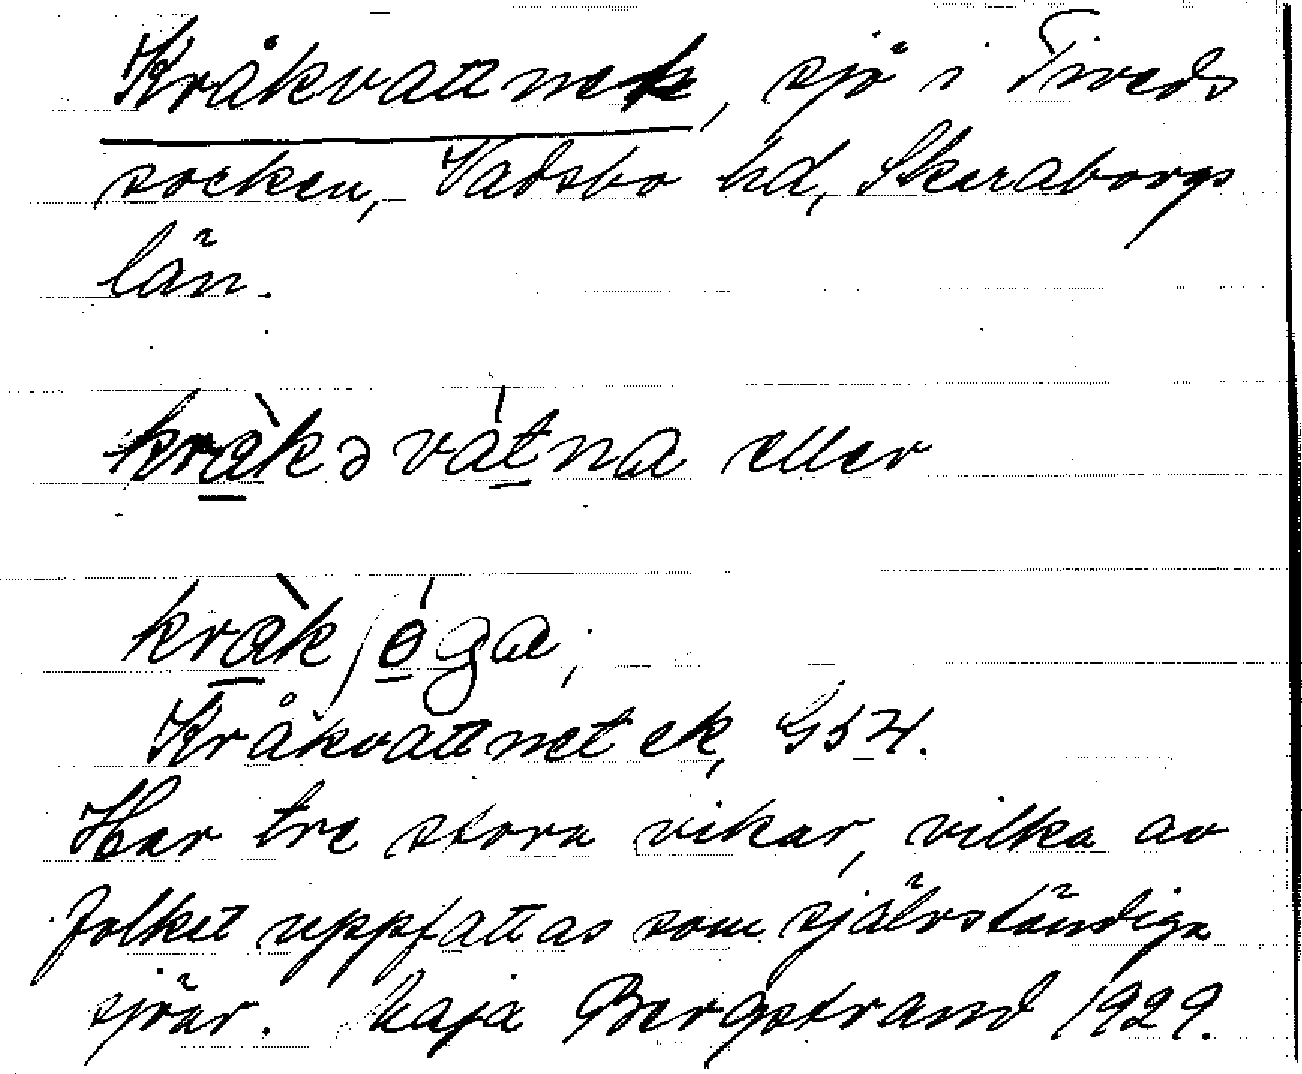 Kråkvattnet, sjö i Tiveds
socken, Vadsbo hd, Skaraborgs
län.
kràkə vátna eller
kràkſóga,
Kråkvattnet ek, G S 4.
Har tre stora vikar, vilka av
folket uppfattas som självständiga
sjöar. Maja Bergstrand 1929.